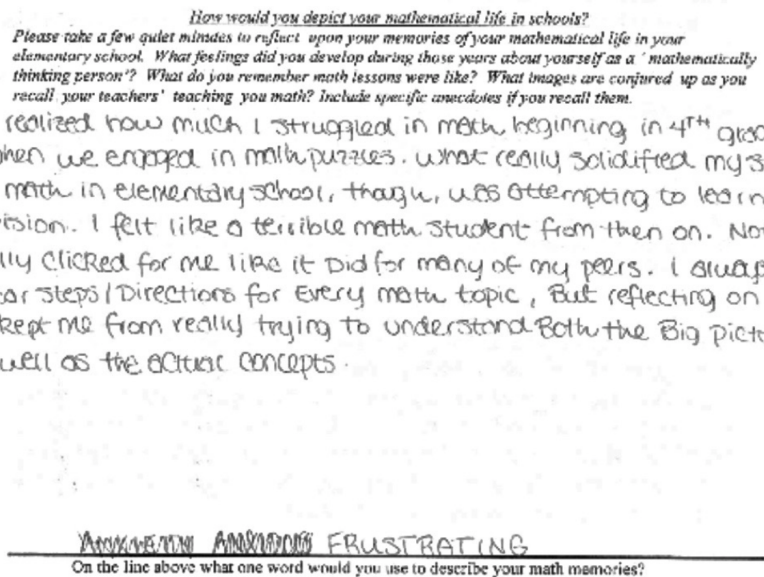 How would you depict your mathematical life in schools?
Please take a few quiet minutes to reflect upon your memories of your mathematical life in your
elementary school. What feelings did you develop during those years about yourself as a "mathematically
thinking person"? What do you remember math lessons were like? What images are conjured up as you
recall your teachers' teaching you math? Include specific anecdotes if you recall them.
realized how much I struggled in math beginning in 4TH grad
hen we engaged in math puzzles. What really solidified my s
math in elementary school, though, was attempting to learn
ision. I felt like a terrible math student from then on. No
lly clicked for me like it did for many of my peers. I always
ar steps/Directions for Every math topic, But reflecting on
kept me from really trying to understand Both the Big pict
well as the actual concepts.
FRUSTRATING
On the line above what one word would you use to describe your math memories?